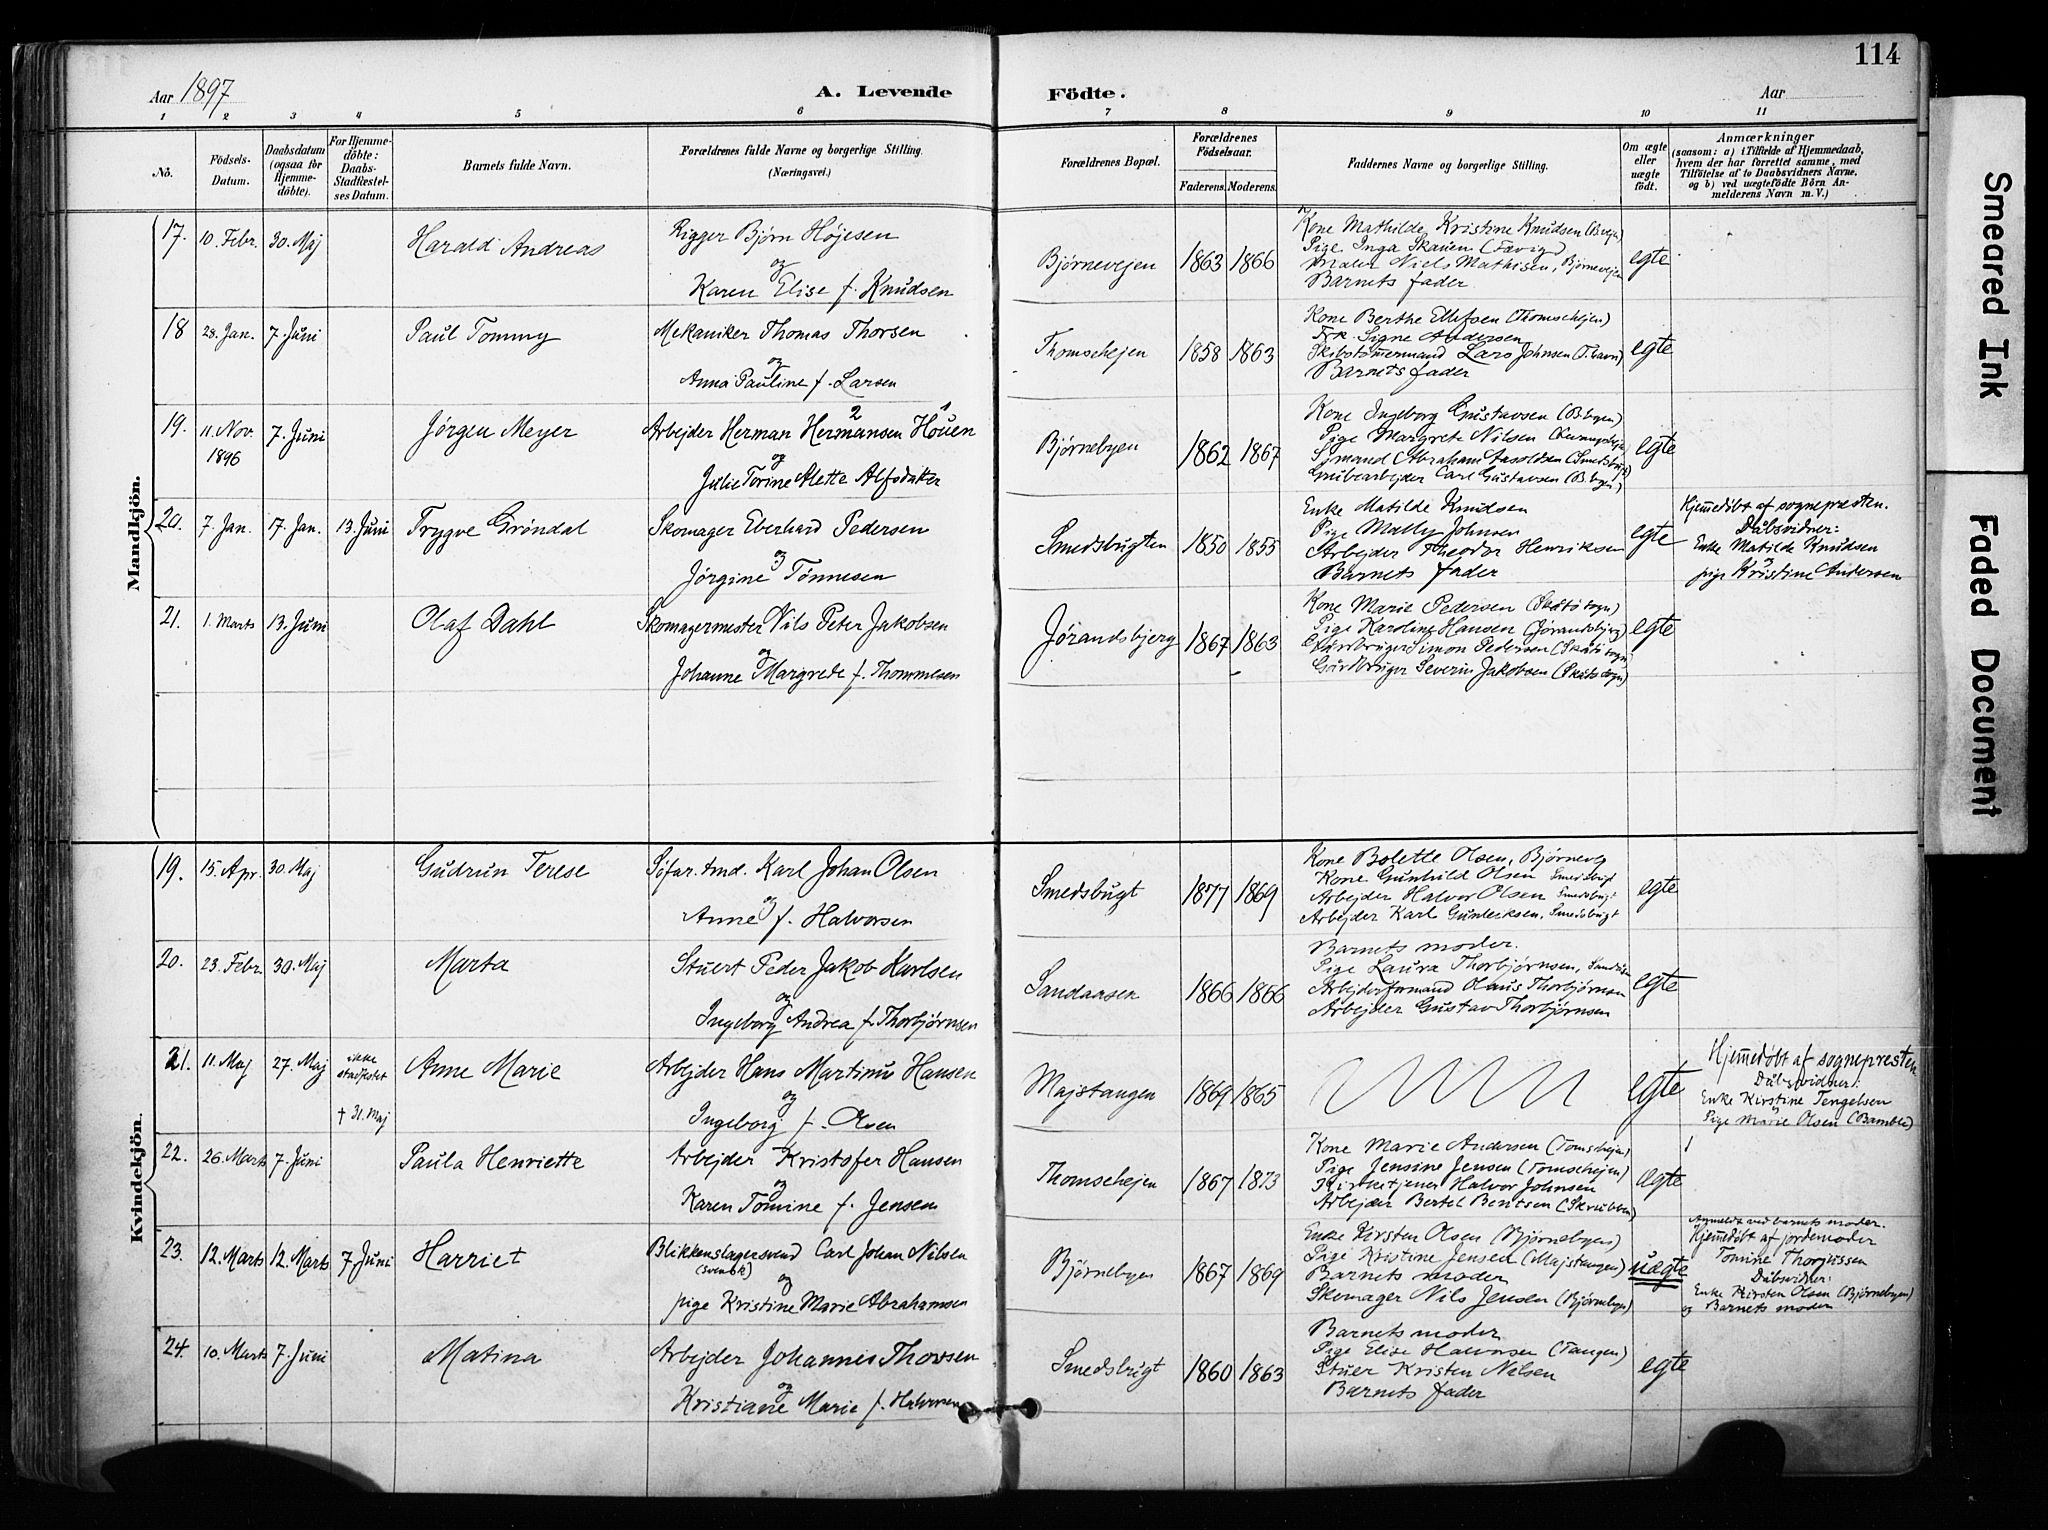 114
Aar 1897
A. Levende Födte.
Aar
1 2 3 4 5 6 7 8 9 10 11
No.
Födsels-Datum.
Daabsdatum (ogsaa for Hjemme-döbte).
For Hjemme-döbte: Daabs-Stadfæstel-ses Datum.
Barnets fulde Navn.
Forældrenes fulde Navne og borgerlige Stilling.
(Næringsvei.)
Forældrenes Bopæl.
Forældrenes Födselsaar.
Faderens. Moderens.
Faddernes Navne og borgerlige Stilling.
Om ægte eller uægte födt.
Anmærkninger
(saasom: a) i Tilfælde af Hjemmedaab,
hvem der har forrettet samme, med
Tilföielse af to Daabsvidners Navne,
og b) ved uægtefödte Börn An-
melderens Navn m. V.)
Mandkjön.
17. 10. Febr. 30. Maj Harald Andreas
Rigger Bjørn Højesen
og
Karen Elise f. Knudsen
Bjørnevejen 1863 1866
Kone Mathilde Kristine Knudsen (B.vejen)
Pige Inga Skauen (Fævig)
Maler Niels Mathisen, Bjørnevejen
Barnets fader
egte
18 28. Jan. 7. Juni Paul Tommy
Mekaniker Thomas Thorsen
og
Anna Pauline f. Larsen
Thomschejen 1858 1863
Kone Berthe Ellefsen (Thomschejen)
Frk. Signe Andersen
Skibstømermand Lars Johnsen (T.havn)
Barnets fader
egte
19. 11. Nov. 1896 7. Juni Jørgen Meyer
Arbejder Herman Hermansen Houen
og
Julie Torine Alette Alfsdatter
Bjørnebyen 1862 1867
Kone Ingeborg Gustavsen (B.byen)
Pige Margrete Nilsen
Sjømand Abraham Aasoldsen (Smedsbugt)
Grubearbejder Carl Gustavsen (B.byen)
egte
20. 7. Jan. 17. Jan. 13. Juni Trygve Grøndal
Skomager Eberhard Pedersen
og
Jørgine Tønnesen
Smedsbugten 1850 1855
Enke Matilde Knudsen
Pige Mally Johnsen
Arbejder Theodor Henriksen
Barnets fader
egte
Hjemmedøbt af sognepræsten.
Dåbsvidner:
Enke Matilde Knudsen
pige Kristine Andersen
21. 1. Marts 13. Juni Olaf Dahl
Skomagermester Nils Peter Jakobsen
og
Johanne Margrede f. Thommesen
Jørandsbjerg 1867 1863
Kone Marie Pedersen (Skåtø sogn)
Pige Karoline Hansen (Jørandsbjerg)
Gårdbruger Simon Pedersen (Skåtø sogn)
Gårdbruger Severin Jakobsen (Skåtø sogn)
egte
Kvindekjön.
19. 15. Apr. 30. Maj Gudrun Terese
Søfar. tmd. Karl Johan Olsen
og
Anne f. Halvorsen
Smedsbugt 1877 1869
Kone Bolette Olsen, Bjørnevej
Kone Gunhild Olsen Smedsbugt
Arbejder Halvor Olsen Smedsbugt
Arbejder Karl Gunleiksen, Smedsbugt
egte
20. 23. Febr. 30. Maj Marta
Stuert Peder Jakob Karlsen
og
Ingeborg Andrea f. Thorbjørnsen
Sandaasen 1866 1866
Barnets moder.
Pige Laura Thorbjørnsen, Sandåsen
Arbejderformand Olaus Thorbjørnsen
Arbejder Gustav Thorbjørnsen
egte
21. 11. Maj 27. Maj ikke stadfestet † 31. Maj Anne Marie
Arbejder Hans Martinus Hansen
og
Ingeborg f. Olsen
Majstangen 1869 1865
egte
Hjemmedøbt af sognepresten
Dåbsvidner:
Enke Kirstine Tengelsen
Pige Marie Olsen (Bamble)
22. 26. Marts 7. Juni Paula Henriette
Arbejder Kristofer Hansen
og
Karen Tomine f. Jensen
Thomschejen 1867 1873
Kone Marie Andersen (Tomschejen)
Pige Jensine Jensen (Tomschejen)
Kirketjener Halvor Johnsen
Arbejder Bertel Bentsen (Skrubben)
ægte
23. 12. Marts 12. Marts 7. Juni Harriet
Blikkenslagersvend Carl Johan Nilsen
(svensk)
og
pige Kristine Marie Abrahamsen
Bjørnebyen 1867 1869
Enke Kirsten Olsen (Bjørnebyen)
Pige Kristine Jensen (Majstangen)
Barnets moder
Skomager Nils Jensen (Bjørnebyen)
uægte
Anmeldt ved barnets moder.
Hjemmedøbt af jordemoder
Tomine Thorjussen
Dåbsvidner:
Enke Kirsten Olsen (Bjørnebyen)
og Barnets moder
24. 10. Marts 7. Juni Matina
Arbejder Johannes Thorsen
og
Kristiane Marie f. Halvorsen
Smedsbugt 1860 1863
Barnets moder
Pige Elise Halvorsen (Tangen)
Stuer Kristen Nilsen
Barnets fader
egte
Smeared Ink
Faded Document